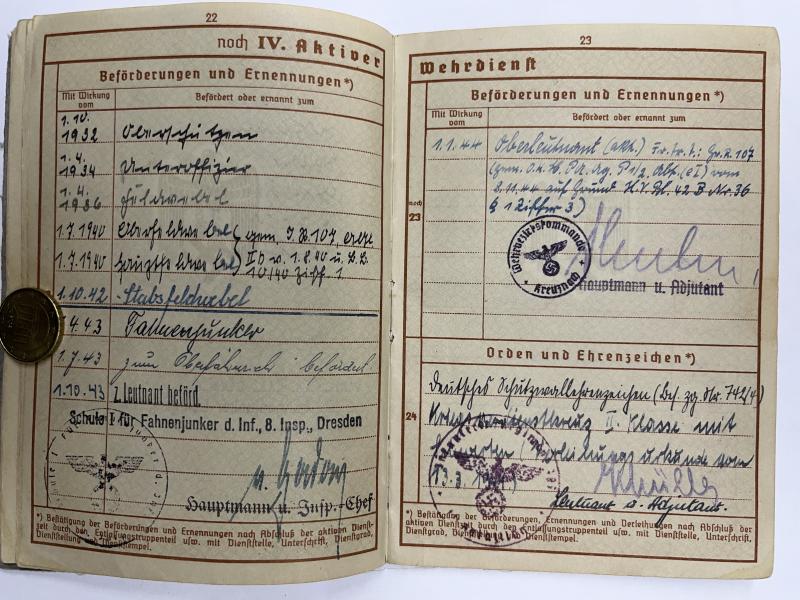 22
noch IV. Aktiver
Beförderungen und Ernennungen*)
Mit Wirkung vom
Befördert oder ernannt zum
1.10. 1932 Oberschützen
1.4. 1934 Unteroffizier
1.4. 1936 Feldwebel
1.7.1940 Oberfeldwebel gem. I.R. 107
1.7.1940 Hauptfeldwebel IIb v. 1.8.40 u.
10/40 Ziff. 1
1.10.42 -Stabsfeldwebel
1.4.43 Fahnenjunker
1.7.43 zum Oberfähnrich befördert
1.10.43 z. Leutnant beförd.
Schule I für Fahnenjunker d. Inf., 8. Insp., Dresden
Hauptmann u. Insp.-Chef
*) Bestätigung der Beförderungen und Ernennungen nach Abschluß der aktiven Dienst-
zeit durch den Entlassungstruppenteil usw. mit Dienststelle, Unterschrift, Dienstgrad,
Dienststellung und Dienststempel.
23
Wehrdienst
Beförderungen und Ernennungen*)
Mit Wirkung vom
Befördert oder ernannt zum
1.1.44 Oberleutnant (akt.) Gr.R. 107
(gem. O.K.H. PA. Ag. P1/2. Abt. vom
8.11.44 auf Grund H.V.Bl. 42 B Nr. 36
§ 1 Ziffer 3)
noch 23
Wehrbezirkskommando
Kreuznach
Hauptmann u. Adjutant
Orden und Ehrenzeichen*)
24
Deutsches Schutzwallehrenzeichen (Bes. zg. Nr. 742/4)
Kriegsverdienstkreuz II. Klasse mit
Schwerter (Verleihungsurkunde vom
Leutnant u. Adjutant.
*) Bestätigung der Beförderungen, Ernennungen und Verleihungen nach Abschluß der
aktiven Dienstzeit durch den Entlassungstruppenteil usw. mit Dienststelle, Unterschrift,
Dienstgrad, Dienststellung und Dienststempel.